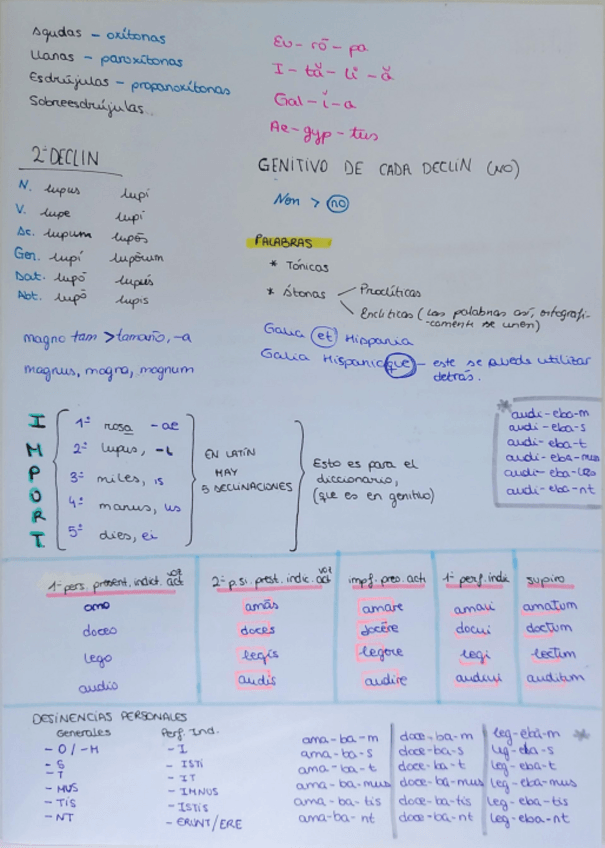 Agudas – oxítonas
Llanas – paroxítonas
Esdrújulas – propanoxítonas
Sobreesdrújulas
Eu – rō – pa
I – tă – li – ă
Gal – ĭ – a
Ae – gyp – tus
2ª DECLIN
N. lupus lupi
V. lupe lupi
Ac. lupum lupōs
Gen. lupī lupōrum
Dat. lupō lupis
Abt. lupō lupis
magno tam > tamaño, -a
magnus, magna, magnum
GENITIVO DE CADA DECLIN (NO)
Non > no
PALABRAS
* Tónicas
* Átonas
Proclíticas
Enclíticas (Las palabras así, ortografi-
-camente se unen)
Galia et Hispania
Galia Hispanic que – este se puede utilizar
detrás.
IMPORT.
1ª rosa -ae
2ª lupus, -i
3ª miles, is
4ª manus, us
5ª dies, ei
EN LATÍN
HAY
5 DECLINACIONES
Esto es para el
diccionario,
(que es en genitivo)
*
audi-eba-m
audi-eba-s
audi-eba-t
audi-eba-mus
audi-eba-tis
audi-eba-nt
1ª pers. present. indict. act voz
2ª p. si. prest. indic. act voz
impf. pres. acti
1ª perf. indi
supino
amo amās amare amaui amatum
doceo doces docēre docui doctum
lego legis legere legi lectum
audio audis audire audiui auditum
DESINENCIAS PERSONALES
Generales
- O / -M
- S
- T
- MUS
- TIS
- NT
Perf. Ind.
- I
- ISTI
- IT
- IMNUS
- ISTIS
- ERUNT/ERE
ama-ba-m doce-ba-m leg-eba-m *
ama-ba-s doce-ba-s leg-eba-s
ama-ba-t doce-ba-t leg-eba-t
ama-ba-mus doce-ba-mus leg-eba-mus
ama-ba-tis doce-ba-tis leg-eba-tis
ama-ba-nt doce-ba-nt leg-eba-nt